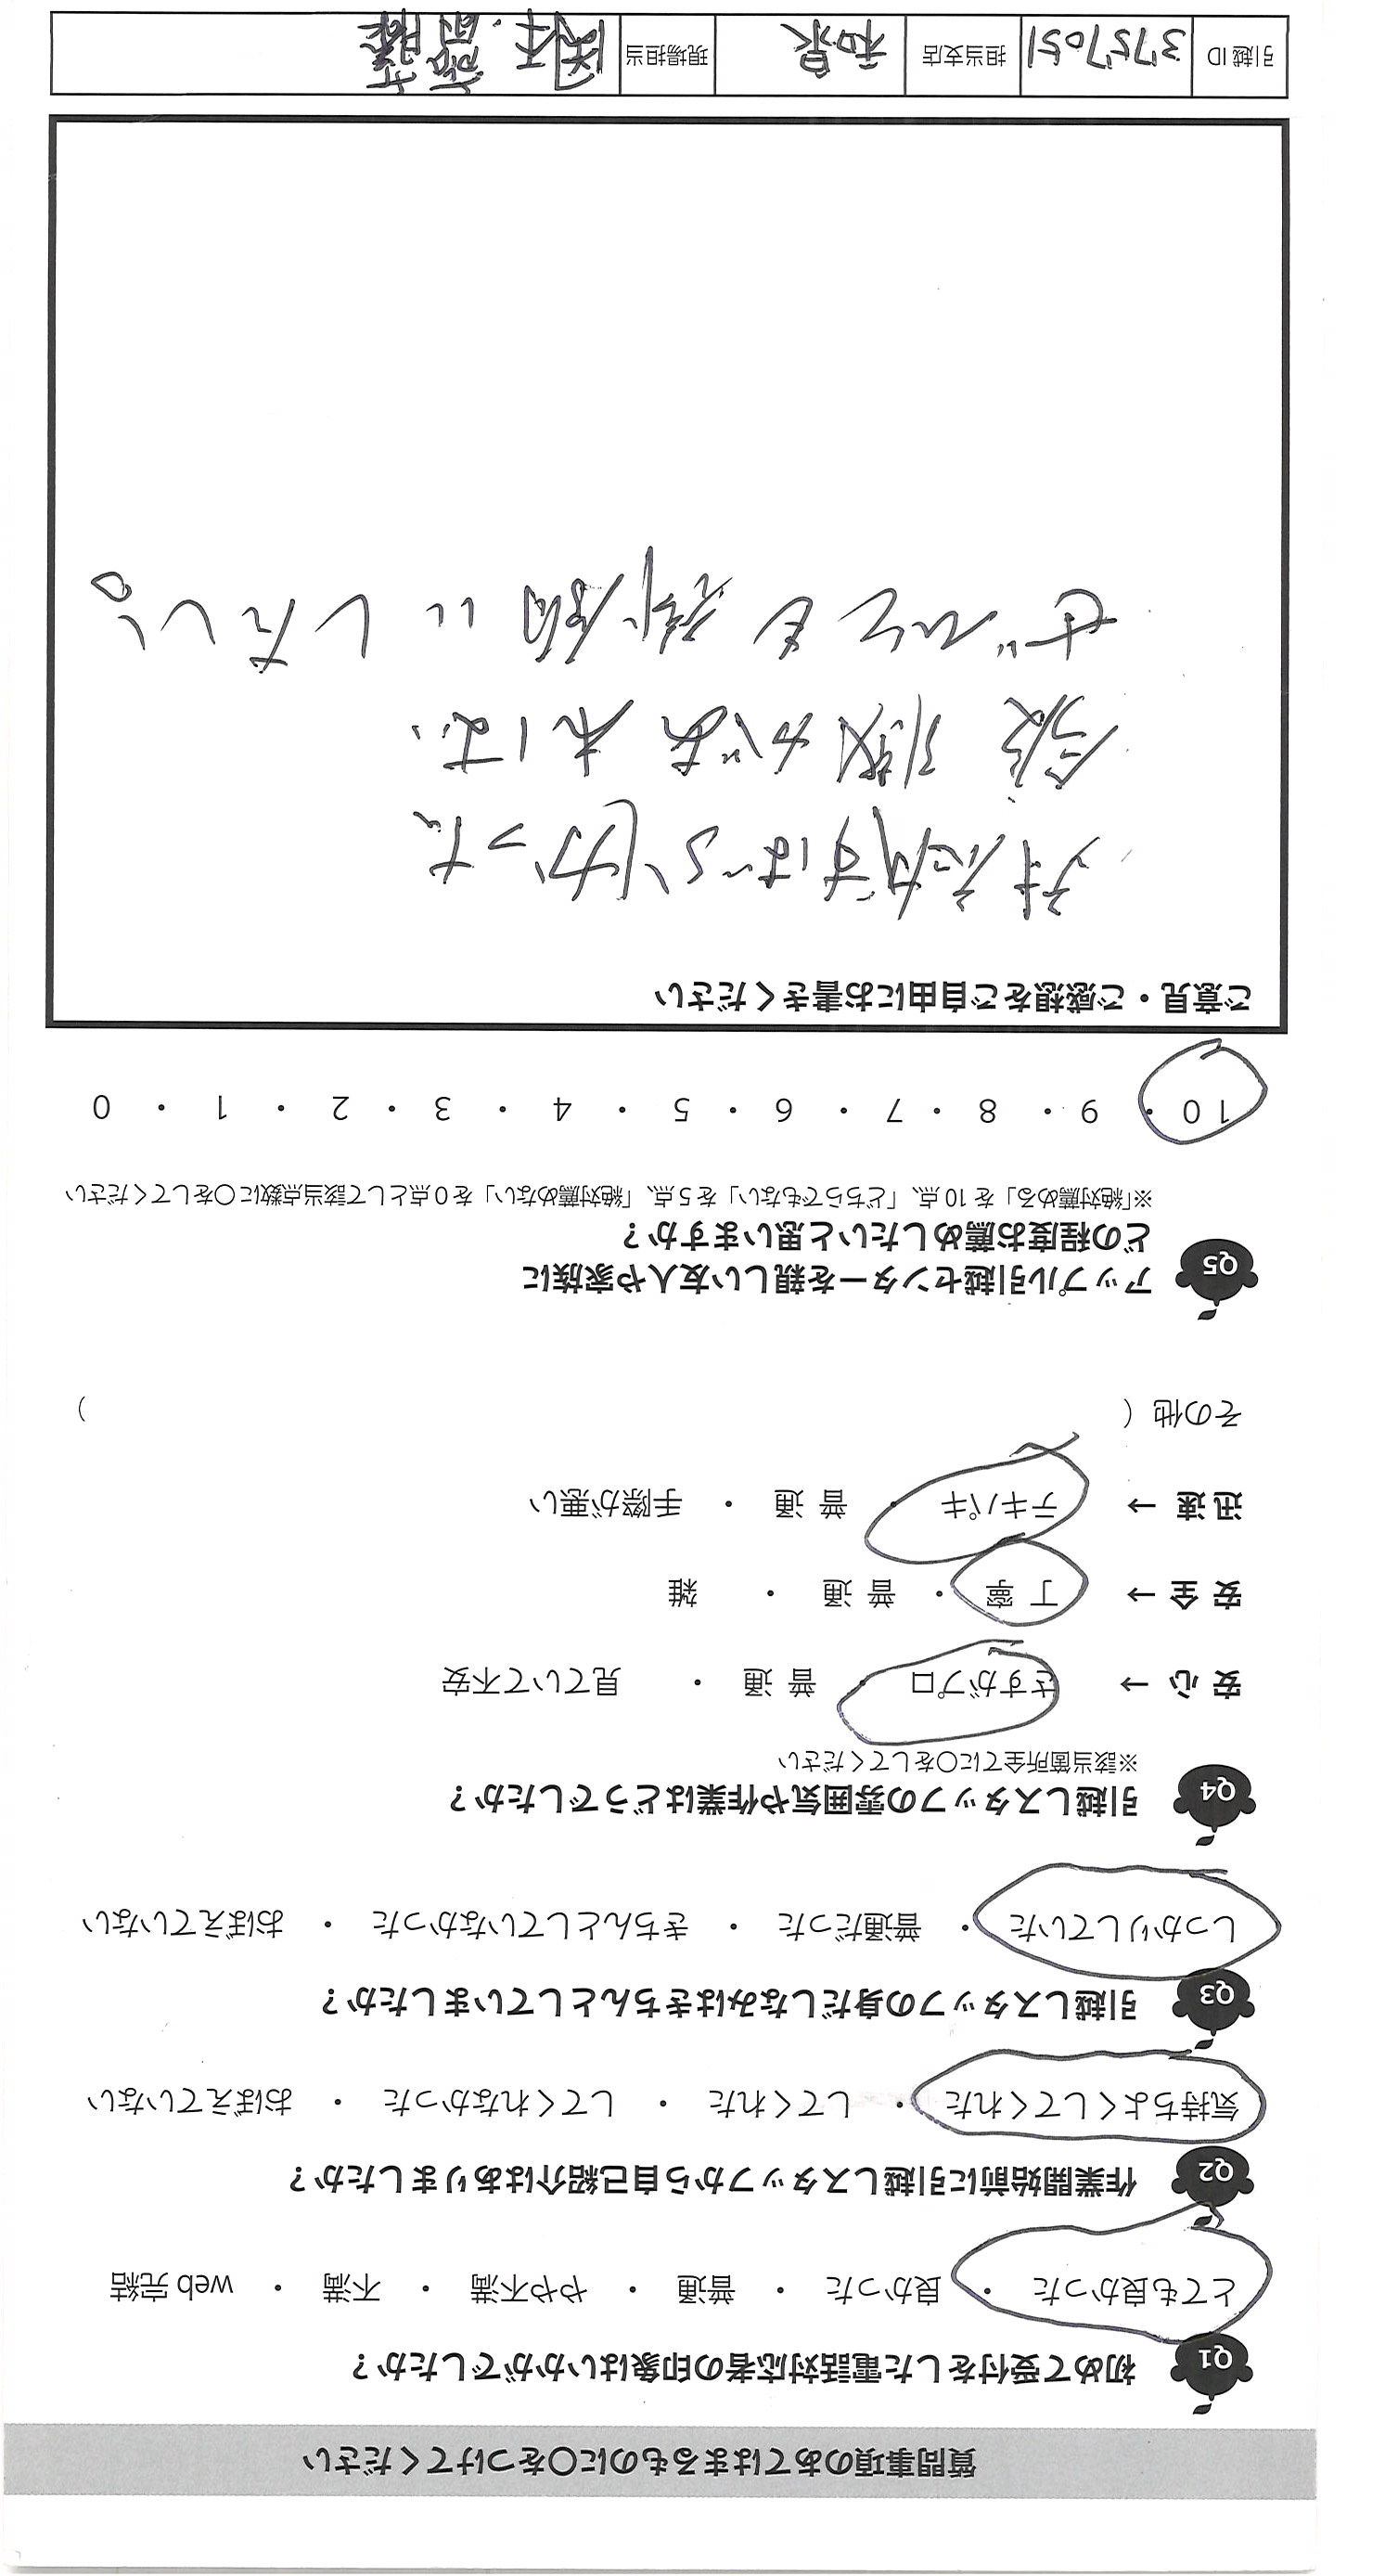 質問事項のあてはまるものに〇をつけてください
Q1 初めて受付をした電話対応者の印象はいかがでしたか？
とても良かった ・ 良かった ・ 普通 ・ やや不満 ・ 不満 ・ web 完結
Q2 作業開始前に引越しスタッフから自己紹介はありましたか？
気持ちよくしてくれた ・ してくれた ・ してくれなかった ・ おぼえていない
Q3 引越しスタッフの身だしなみはきちんとしていましたか？
しっかりしていた ・ 普通だった ・ きちんとしていなかった ・ おぼえていない
Q4 引越しスタッフの雰囲気や作業はどうでしたか？
※該当箇所全てに〇をしてください
安 心 → さすがプロ ・ 普 通 ・ 見ていて不安
安 全 → 丁 寧 ・ 普 通 ・ 雑
迅 速 → テキパキ ・ 普 通 ・ 手際が悪い
その他（ ）
Q5 アップル引越センターを親しい友人や家族に
どの程度お薦めしたいと思いますか？
※「絶対薦める」を 10 点、「どちらでもない」を 5 点、「絶対薦めない」を 0 点として該当点数に〇をしてください
10 ・ 9 ・ 8 ・ 7 ・ 6 ・ 5 ・ 4 ・ 3 ・ 2 ・ 1 ・ 0
ご意見・ご感想をご自由にお書きください
対応がすばらしかった
今後 引越があれば、
ぜひとも御願いしたい。
引越 ID 3757051 担当支店 和泉 現場担当 斎藤